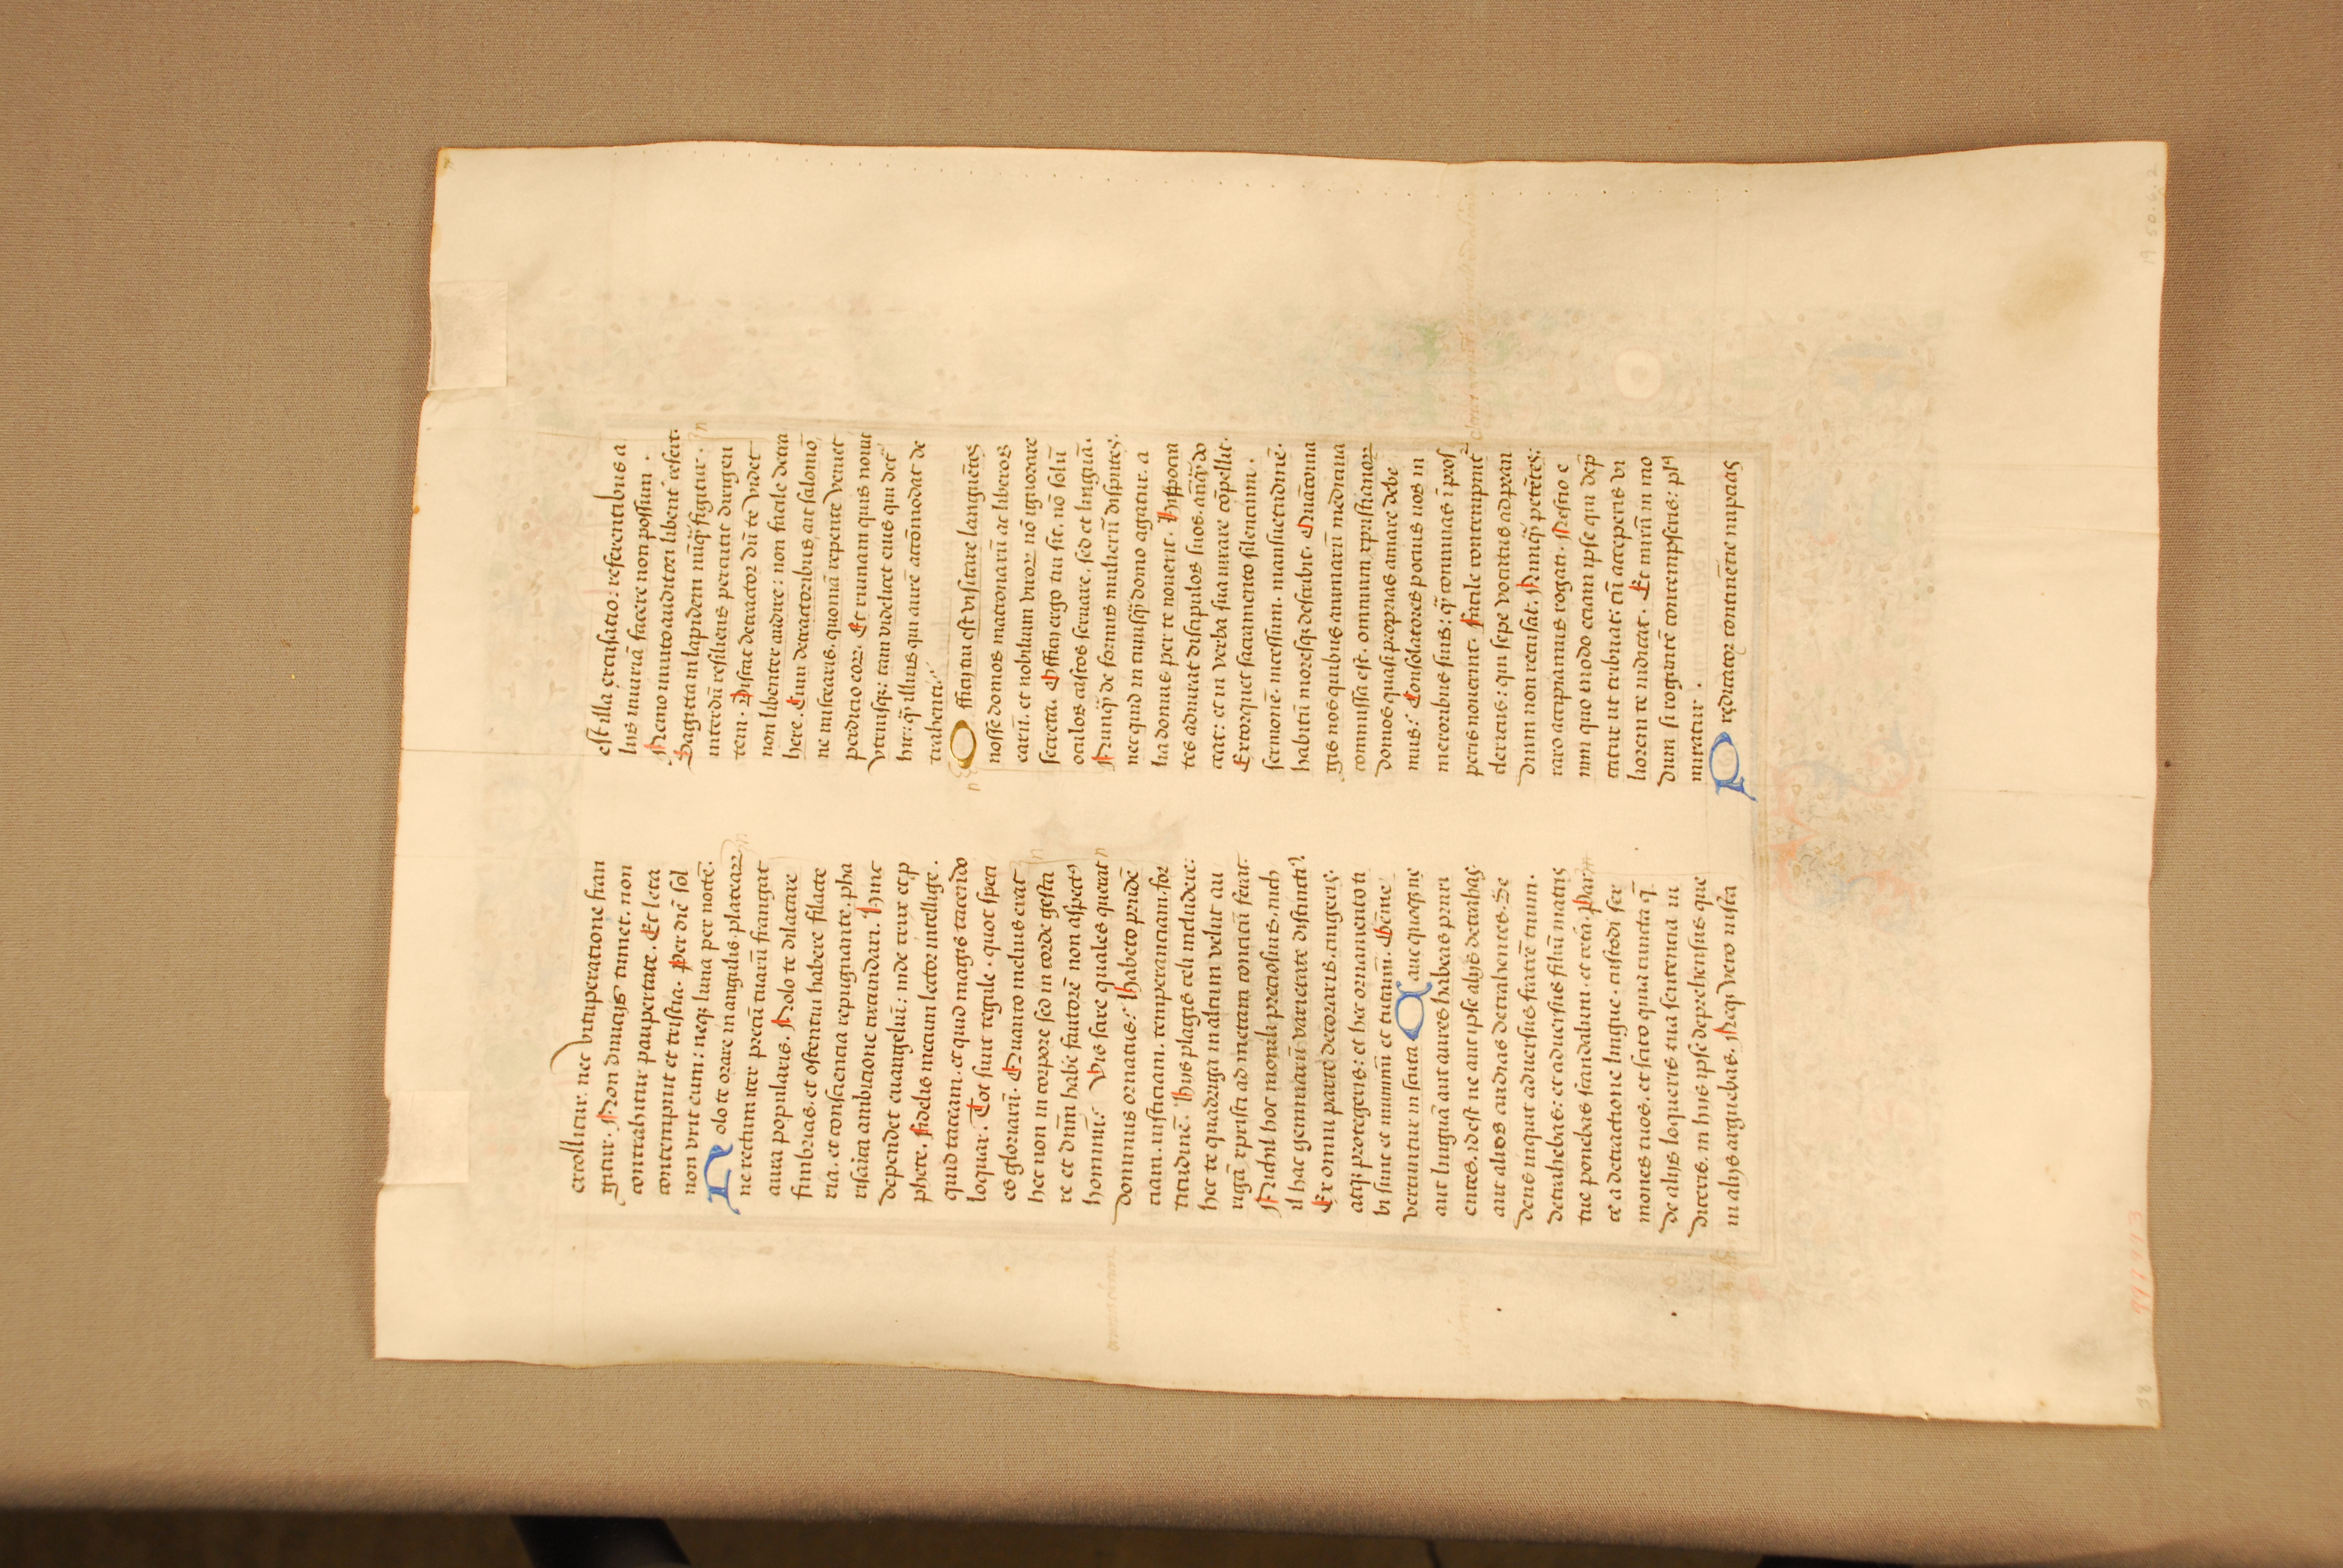 extollitur. nec vituperatione fran
gitur. Non diuicijs tumet. non
contrahitur paupertate. Et leta
contempnit et tristia. Per diē sol
non vrit eum: neqꝫ luna per noctē.
Nolo te orare in angulis plateaꝝ
ne rectum iter precū tuarū frangat
aura popularis. Nolo te dilatare
fimbrias. et ostentui habere filacte
ria. et consciencia repugnante. pha
risaica ambicione circumdari. Hinc
dependet euangeliū: inde crux et ꝓ
phete. Fidelis mecum lector intellige.
quid taceam. et quid magis tacendo
loquar. Tot sunt regule. quot speci
es gloriarū. Quanto melius erat
hec non in corpore sed in corde gesta
re et dnm̄ habē fautorē non aspectꝰ
hominū: Vis scire quales querat
dominus ornatus: Habeto prudē
ciam. iusticiam. temperanciam. for
titudinē. Hijs plagis celi includere:
hec te quadriga in altum velut au
rigā xpristi ad metam concitū ferat.
Nichil hoc monili preciosius. nich
il hac gemmarū varietate distinctiꝰ.
Ex omni parte decoraris. cingeris.
atqꝫ protegeris: et hec ornamento ti
bi sunt et munimī et tutamī. Gēme
vertuntur in scuta Caue quoqꝫ ne
aut linguā aut aures habeas pruri
entes. idest ne aut ipse alijs detrahas.
aut alios audias detrahentes. Se
dens inquit aduersus fratrē tuum.
detrahebas: et aduersus filiū matris
tue ponebas scandalum. et cetā. Par
ce a detractione lingue. custodi ser
mones tuos. et scito quia cuncta q̄
de alijs loqueris tua sentencia iu
diceris. in hijs ipse deprehensus que
in alijs arguebas. Neqꝫ vero iusta
est illa excusatio: referentibus a
lijs iniuriā facere non possum.
Nemo inuito auditori libent̄ refert.
Sagitta in lapidem nūqꝫ figitur. in
interdū resiliens percutit dirigen
tem. Discat detractor dū te videt
non libenter audire: non facile detra
here. Cum detractoribus ait salomō
ne miscearis. quoniā repente veniet
perdicio eoꝝ. Et ruinam quis nouit
vtriusqꝫ: tam videlicet eius qui det̄
hit: q̄ illius qui aurē accōmodat de
trahenti.
Officij tui est visitare languētes
nosse domos matronarū ac liberos
earū. et nobilium viroꝝ nō ignorare
secreta. Officij ergo tui sit. nō solū
oculos castos seruare. sed et linguā.
Nunqꝫ de formis mulierū disputes.
nec quid in cuiusqꝫ domo agatur. a
lia domus per te nouerit. Hippocra
tes adiurat discipulos suos. anqꝫ do
ceat: et in verba sua iurare cōpellit.
Extorquet sacramento silencium.
sermonē. incessum. mansuetudinē.
habitū moresqꝫ describit. Quāto ma
gis nos quibus animarū medicina
commissa est. omnium xpristianoꝝ
domos quasi proprias amare debe
mus: Consolatores potius nos in
meroribus suis: q̄ conuiuas ī pros
peris nouerint. Facile contempnit᷑
clericus: qui sepe vocatus ad pran
dium non recusat. Nunqꝫ petētes:
raro accipiamus rogati. Nescio e
nim quo modo etiam ipse qui dep̄
catur ut tribuat: cū acceperis vi
liorem te iudicat. Et mirū in mo
dum si rogantē contempseris: plꝰ
miratur.
Predicator continēcie nupcias